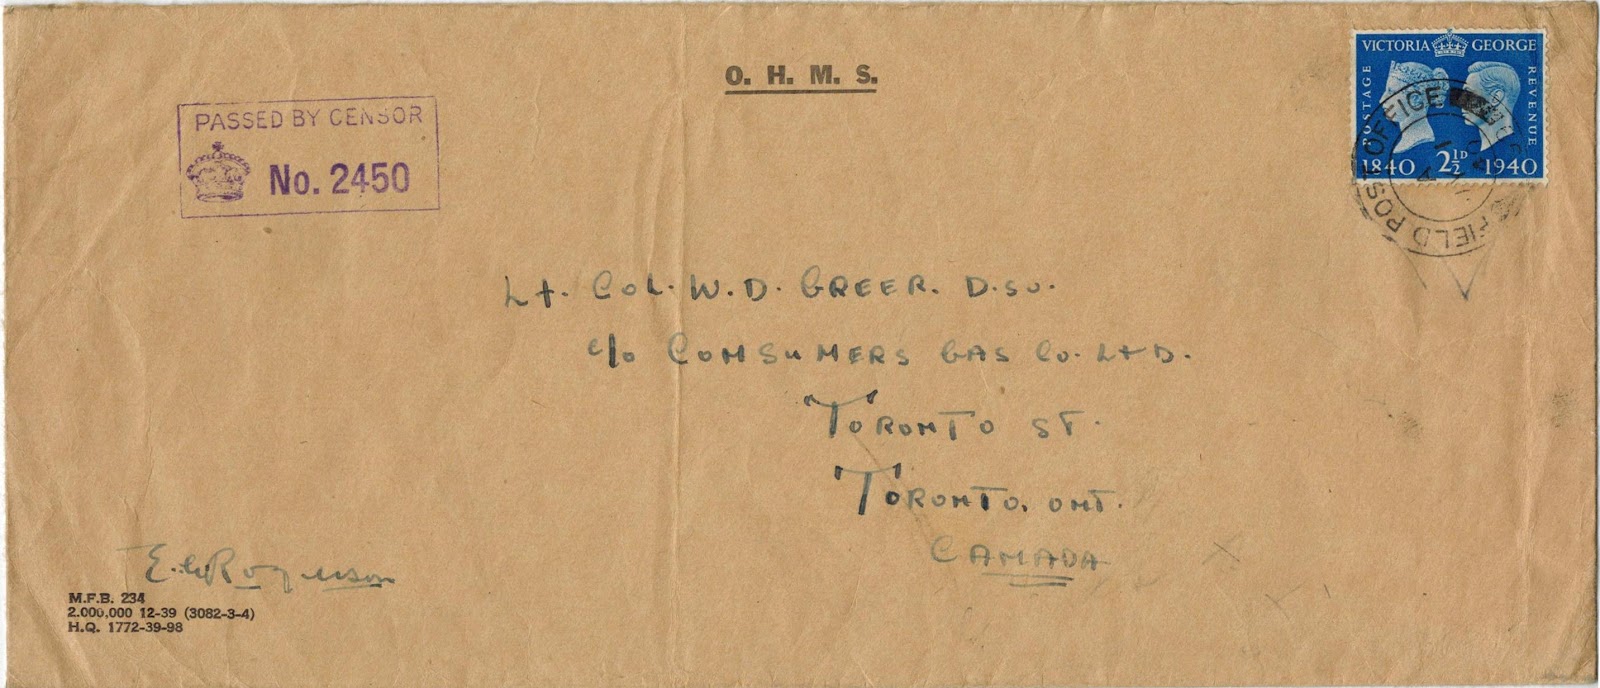 O. H. M. S.
PASSED BY CENSOR
No. 2450
VICTORIA GEORGE
POSTAGE
REVENUE
1840 2½D 1940
FIELD POST OFFICE
Lt. COL. W. D. GREER. D.S.O.
c/o CONSUMERS GAS CO. LTD.
TORONTO ST.
TORONTO. ONT.
CANADA
M.F.B. 234
2.000,000 12-39 (3082-3-4)
H.Q. 1772-39-98